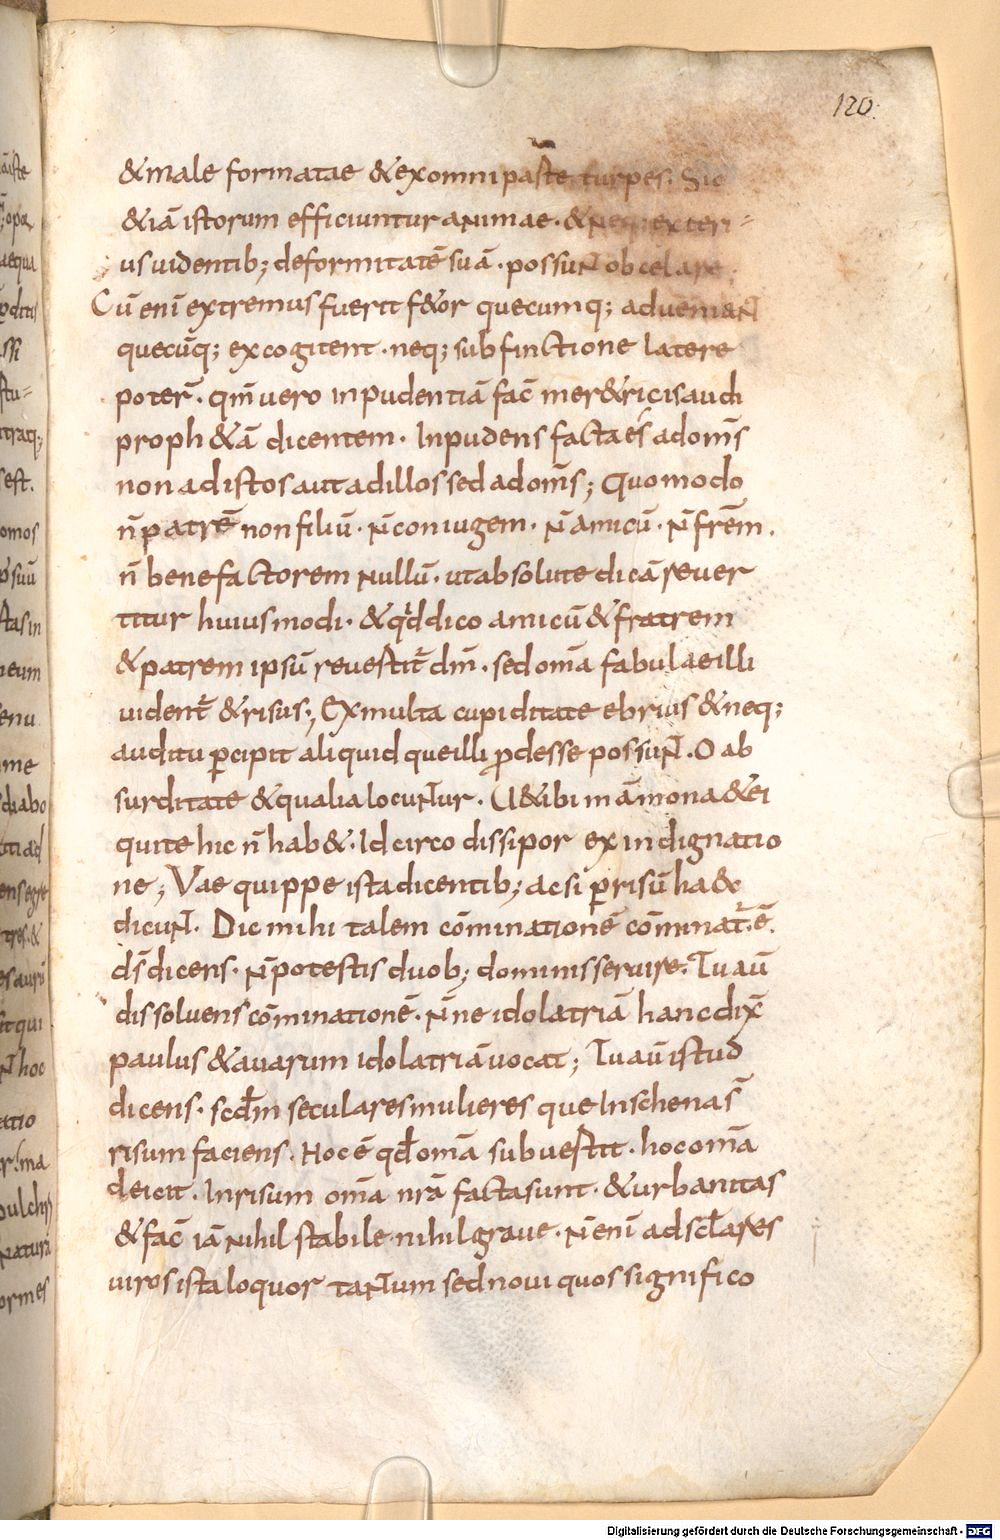 120.
&male formatae &exomni paste turpes. Sic
&iā istorum efficiuntur animae. &neq; exteri=
us uidentib; deformitatē suā. possunt obcelare.
Cū enī extremus fuerit f&or quecumq; adueniant
quecūq; excogitent. neq; subfinctione latere
poter̄. qm̄ uero inpudentiā fac̄ mer&ricis audi
proph&ā dicentem. Inpudens facta es adom̄s
non ad istos aut ad illos sed adom̄s; Quomodo
n̄ patrē non filiū. n̄ coniugem. n̄ amicū. n̄ fr̄em.
n̄ benefactorem nullū. ut absolute dicā reuer
titur huiusmodi. &qd dico amicū &fratrem
&patrem ipsū reuestit̄ dm̄. sed om̄a fabulae illi
uident̄ &risus; Ex multa cupiditate ebrius &neq;
auditu p̄cipit aliquid que illi p̄desse possunt. O ab
surditate &qualia locuntur. U& ibi māmona &ei
qui te hic n̄ hab&. Idcirco dissipor ex indignatio
ne; Vae quippe ista dicentib; ac si p̄ risū haec
dicunt. Dic mihi talem cōminationē cōminat̄. ē.
d̄s dicens. n̄ potestis duob; dominis seruire. Tu aū
dissoluens cōminationē. n̄ne idolatriā hanc dix̄
paulus &auarum idolatriā uocat; Tu aū istud
dicens. scd̄m seculares mulieres que In schenas
risum faciens. Hoc ē qd̄ om̄a subuestit. hoc om̄a
deicit. In risum om̄a nr̄a facta sunt. &urbanitas
&fac̄ iā nihil stabile nihil graue. n̄ enī ad scl̄ares
uiros ista loquor tantum sed noui quos significo
Digitalisierung gefördert durch die Deutsche Forschungsgemeinschaft - DFG